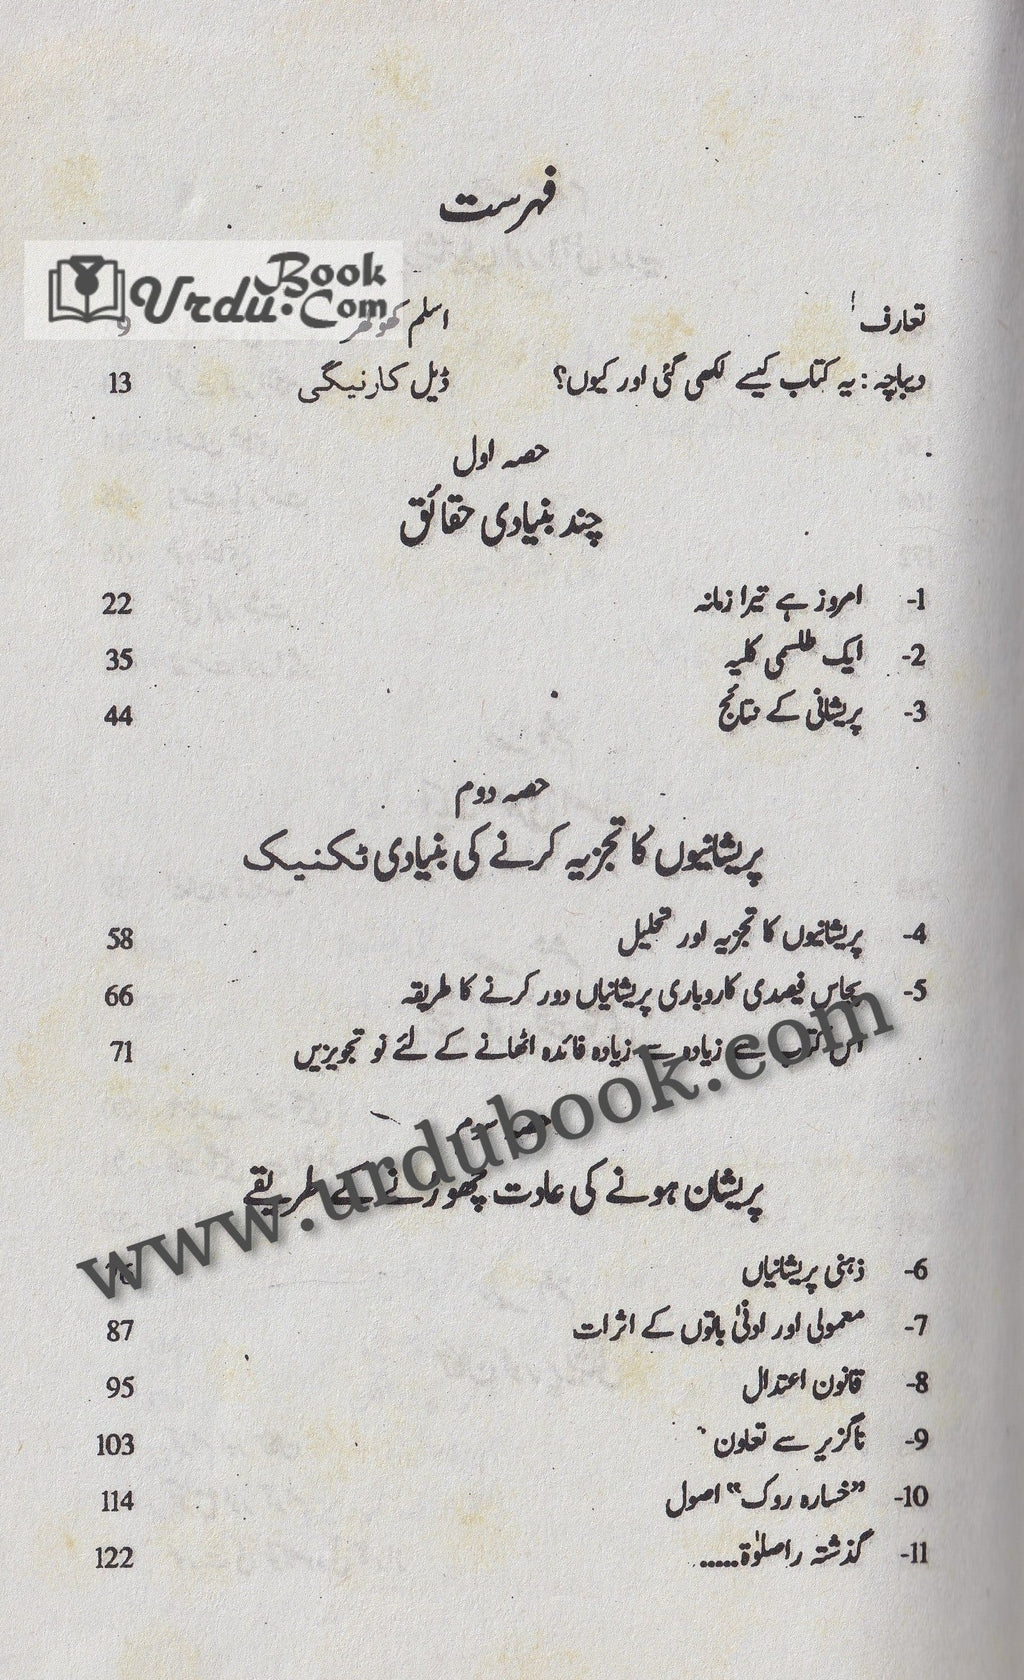 فہرست
Urdu Book.Com
تعارف اسلم کھوکھر 9
دیباچہ : یہ کتاب کیسے لکھی گئی اور کیوں؟ ڈیل کارنیگی 13
حصہ اول
چند بنیادی حقائق
1- امروز ہے تیرا زمانہ 22
2- ایک طلسمی کلیہ 35
3- پریشانی کے نتائج 44
حصہ دوم
پریشانیوں کا تجزیہ کرنے کی بنیادی ٹکنیک
4- پریشانیوں کا تجزیہ اور تحلیل 58
5- پچاس فیصدی کاروباری پریشانیاں دور کرنے کا طریقہ 66
اس کتاب سے زیادہ سے زیادہ فائدہ اٹھانے کے لئے نو تجویزیں 71
حصہ سوم
پریشان ہونے کی عادت چھوڑنے کے طریقے
www.urdubook.com
6- ذہنی پریشانیاں
7- معمولی اور ادنیٰ باتوں کے اثرات 87
8- قانون اعتدال 95
9- ناگزیر سے تعاون 103
10- ”خسارہ روک“ اصول 114
11- گذشتہ را صلوٰۃ...... 122